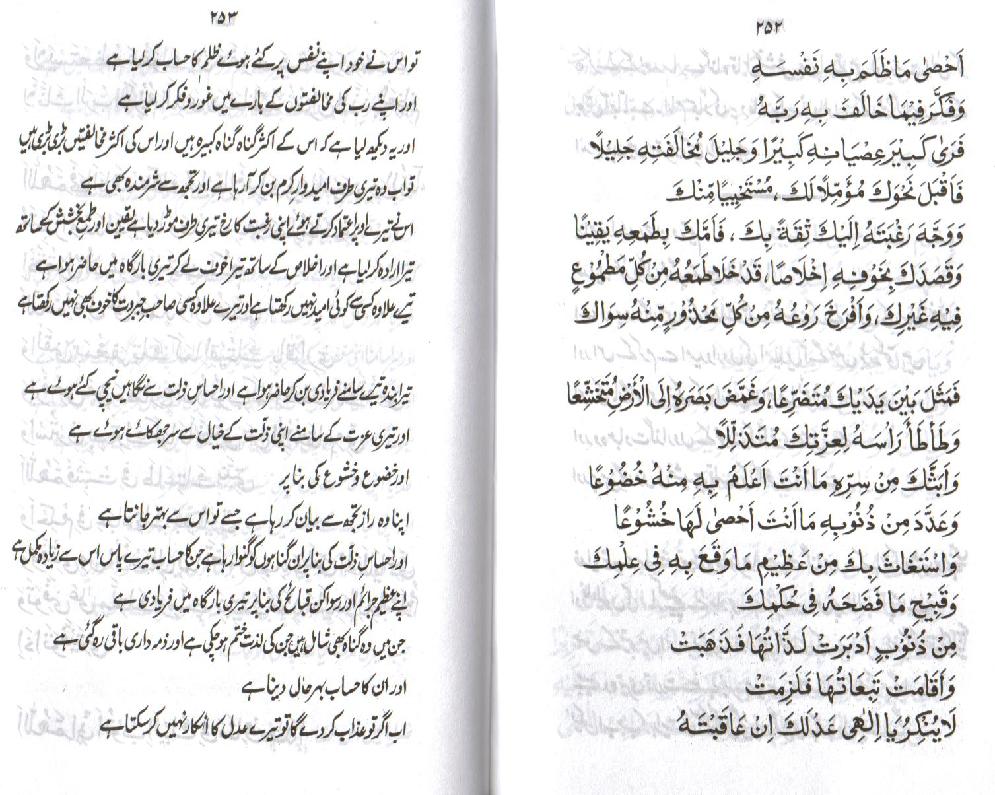 ۲۵۲
اَحْصٰى مَا ظَلَمَ بِهٖ نَفْسَهٖ
وَ فَكَّرَ فِيْمَا خَالَفَ بِهٖ رَبَّهُ
فَرَىٰ كَبِيْرَ عِصْيَانِهٖ كَبِيْرًا وَ جَلِيْلَ مُخَالَفَتِهٖ جَلِيْلًا
فَاَقْبَلَ نَحْوَكَ مُؤَمِّلًا لَكَ، مُسْتَحْيِيًا مِّنْكَ
وَ وَجَّهَ رَغْبَتَهُ اِلَيْكَ ثِقَةً بِكَ، فَاَمَّكَ بِطَمَعِهٖ يَقِيْنًا
وَ قَصَدَكَ بِخَوْفِهٖ اِخْلَاصًا، قَدْ خَلَا طَمَعُهُ مِنْ كُلِّ مَطْمُوْعٍ
فِيْهِ غَيْرِكَ، وَ اَفْرَخَ رَوْعُهُ مِنْ كُلِّ مَحْذُوْرٍ مِّنْهُ سِوَاكَ
فَمَثَلَ بَيْنَ يَدَيْكَ مُتَضَرِّعًا، وَ غَمَّضَ بَصَرَهُ اِلَى الْاَرْضِ مُتَخَشِّعًا
وَ طَأْطَأَ رَاْسَهُ لِعِزَّتِكَ مُتَذَلِّلًا
وَ اَبَثَّكَ مِنْ سِرِّهٖ مَا اَنْتَ اَعْلَمُ بِهٖ مِنْهُ خُضُوْعًا
وَ عَدَّدَ مِنْ ذُنُوْبِهٖ مَا اَنْتَ اَحْصٰى لَهَا خُشُوْعًا
وَ اسْتَغَاثَ بِكَ مِنْ عَظِيْمِ مَا وَقَعَ بِهٖ فِىْ عِلْمِكَ
وَ قَبِيْحِ مَا فَضَحَهُ فِىْ حُكْمِكَ
مِنْ ذُنُوْبٍ اَدْبَرَتْ لَذَّاتُهَا فَذَهَبَتْ
وَ اَقَامَتْ تَبِعَاتُهَا فَلَزِمَتْ
لَا يُنْكِرُ يَا اِلٰهِىْ عَدْلَكَ اِنْ عَاقَبْتَهُ
۲۵۳
تو اس نے خود اپنے نفس پر کئے ہوئے ظلم کا حساب کر لیا ہے
اور اپنے رب کی مخالفتوں کے بارے میں غور و فکر کر لیا ہے
اور یہ دیکھ لیا ہے کہ اس کے اکثر گناہ گناہ کبیرہ ہیں اور اس کی اکثر مخالفتیں بڑی بڑی ہیں
تو اب وہ تیری طرف امیدوار کرم بن کر آ رہا ہے اور تجھ سے شرمندہ بھی ہے
اس نے تیرے اوپر اعتماد کرتے ہوئے اپنی رغبت کا رخ تیری طرف موڑ دیا ہے یقین اور طمع بخشش کے ساتھ
تیرا ارادہ کر لیا ہے اور اخلاص کے ساتھ تیرا خوف لے کر تیری بارگاہ میں حاضر ہوا ہے
تیرے علاوہ کسی سے کوئی امید نہیں رکھتا ہے اور تیرے علاوہ کسی صاحب جبروت کا خوف بھی نہیں رکھتا ہے
تیرا بندہ تیرے سامنے فریادی بن کر حاضر ہوا ہے اور احساس ذلت سے نگاہیں نیچی کئے ہوئے ہے
اور تیری عزت کے سامنے اپنی ذلت کے خیال سے سر جھکائے ہوئے ہے
اور خضوع و خشوع کی بنا پر
اپنا وہ راز تجھ سے بیان کر رہا ہے جسے تو اس سے بہتر جانتا ہے
اور احساس ذلت کی بنا پر ان گناہوں کو گنوا رہا ہے جن کا حساب تیرے پاس اس سے زیادہ مکمل ہے
اپنے عظیم جرائم اور رسوا کن قبائح کی بنا پر تیری بارگاہ میں فریادی ہے
جن میں وہ گناہ بھی شامل ہیں جن کی لذت ختم ہو چکی ہے اور ذمہ داری باقی رہ گئی ہے
اور ان کا حساب بہر حال دینا ہے
اب اگر تو عذاب کر دے گا تو تیرے عدل کا انکار نہیں کر سکتا ہے